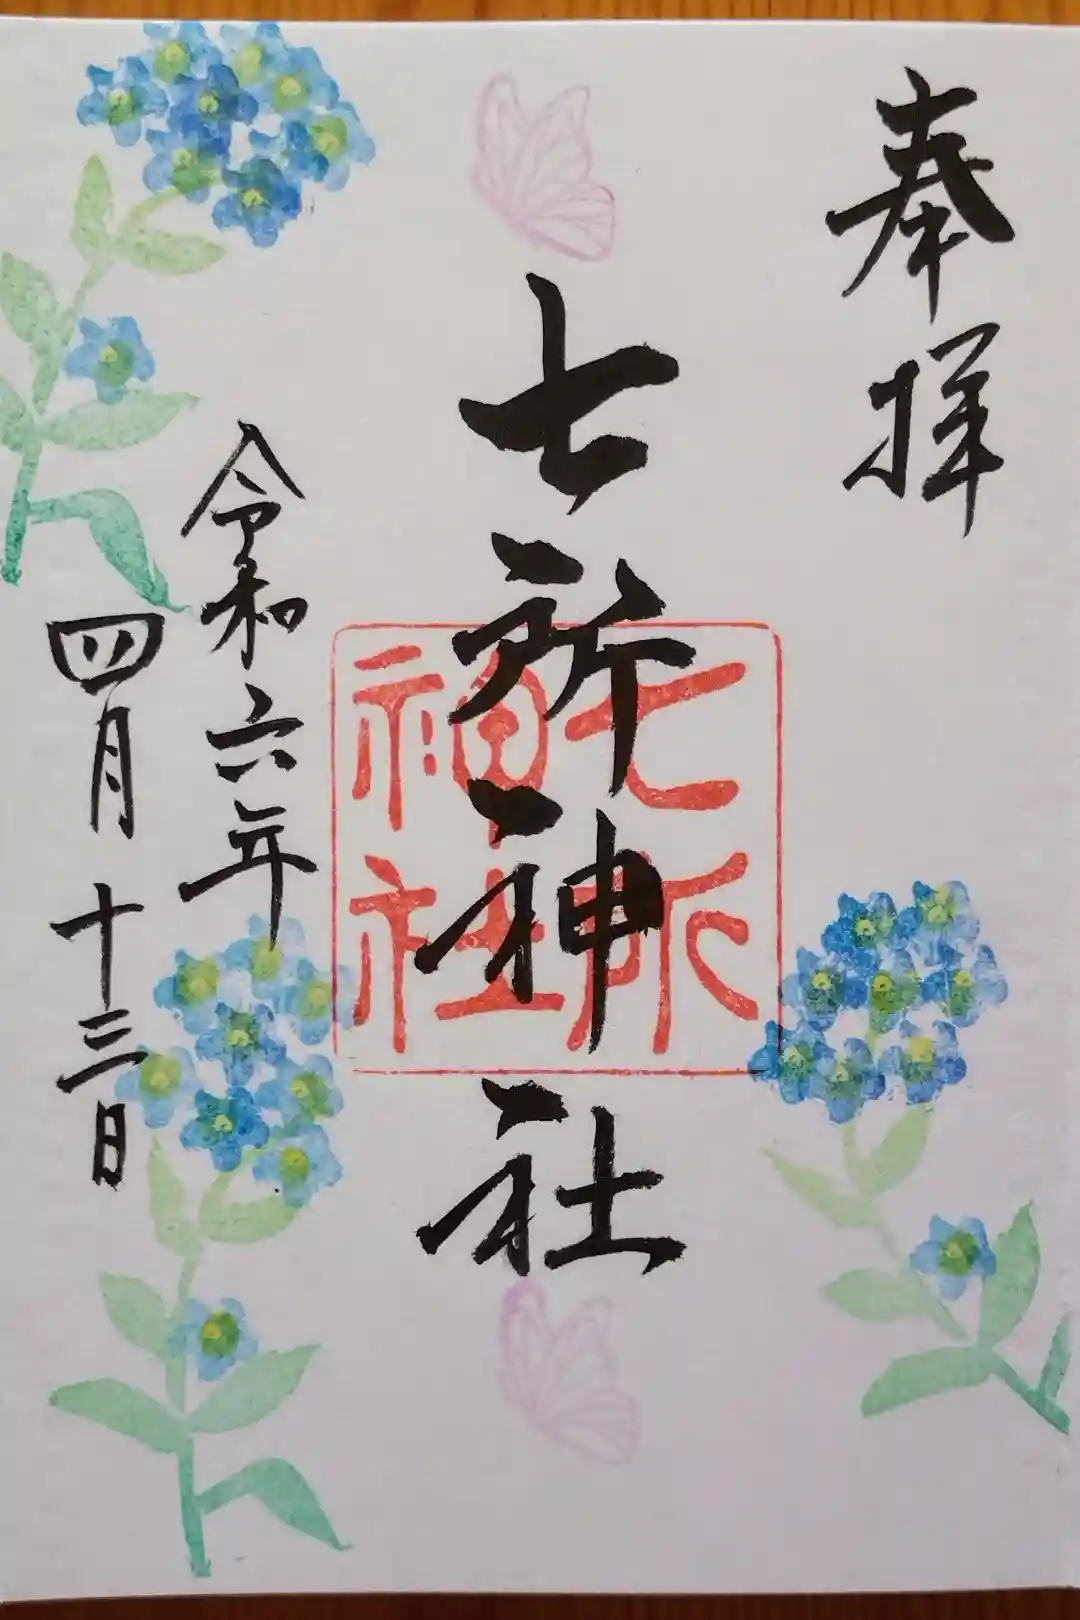 奉拝
七所神社
七所
神社
令和六年
四月十三日